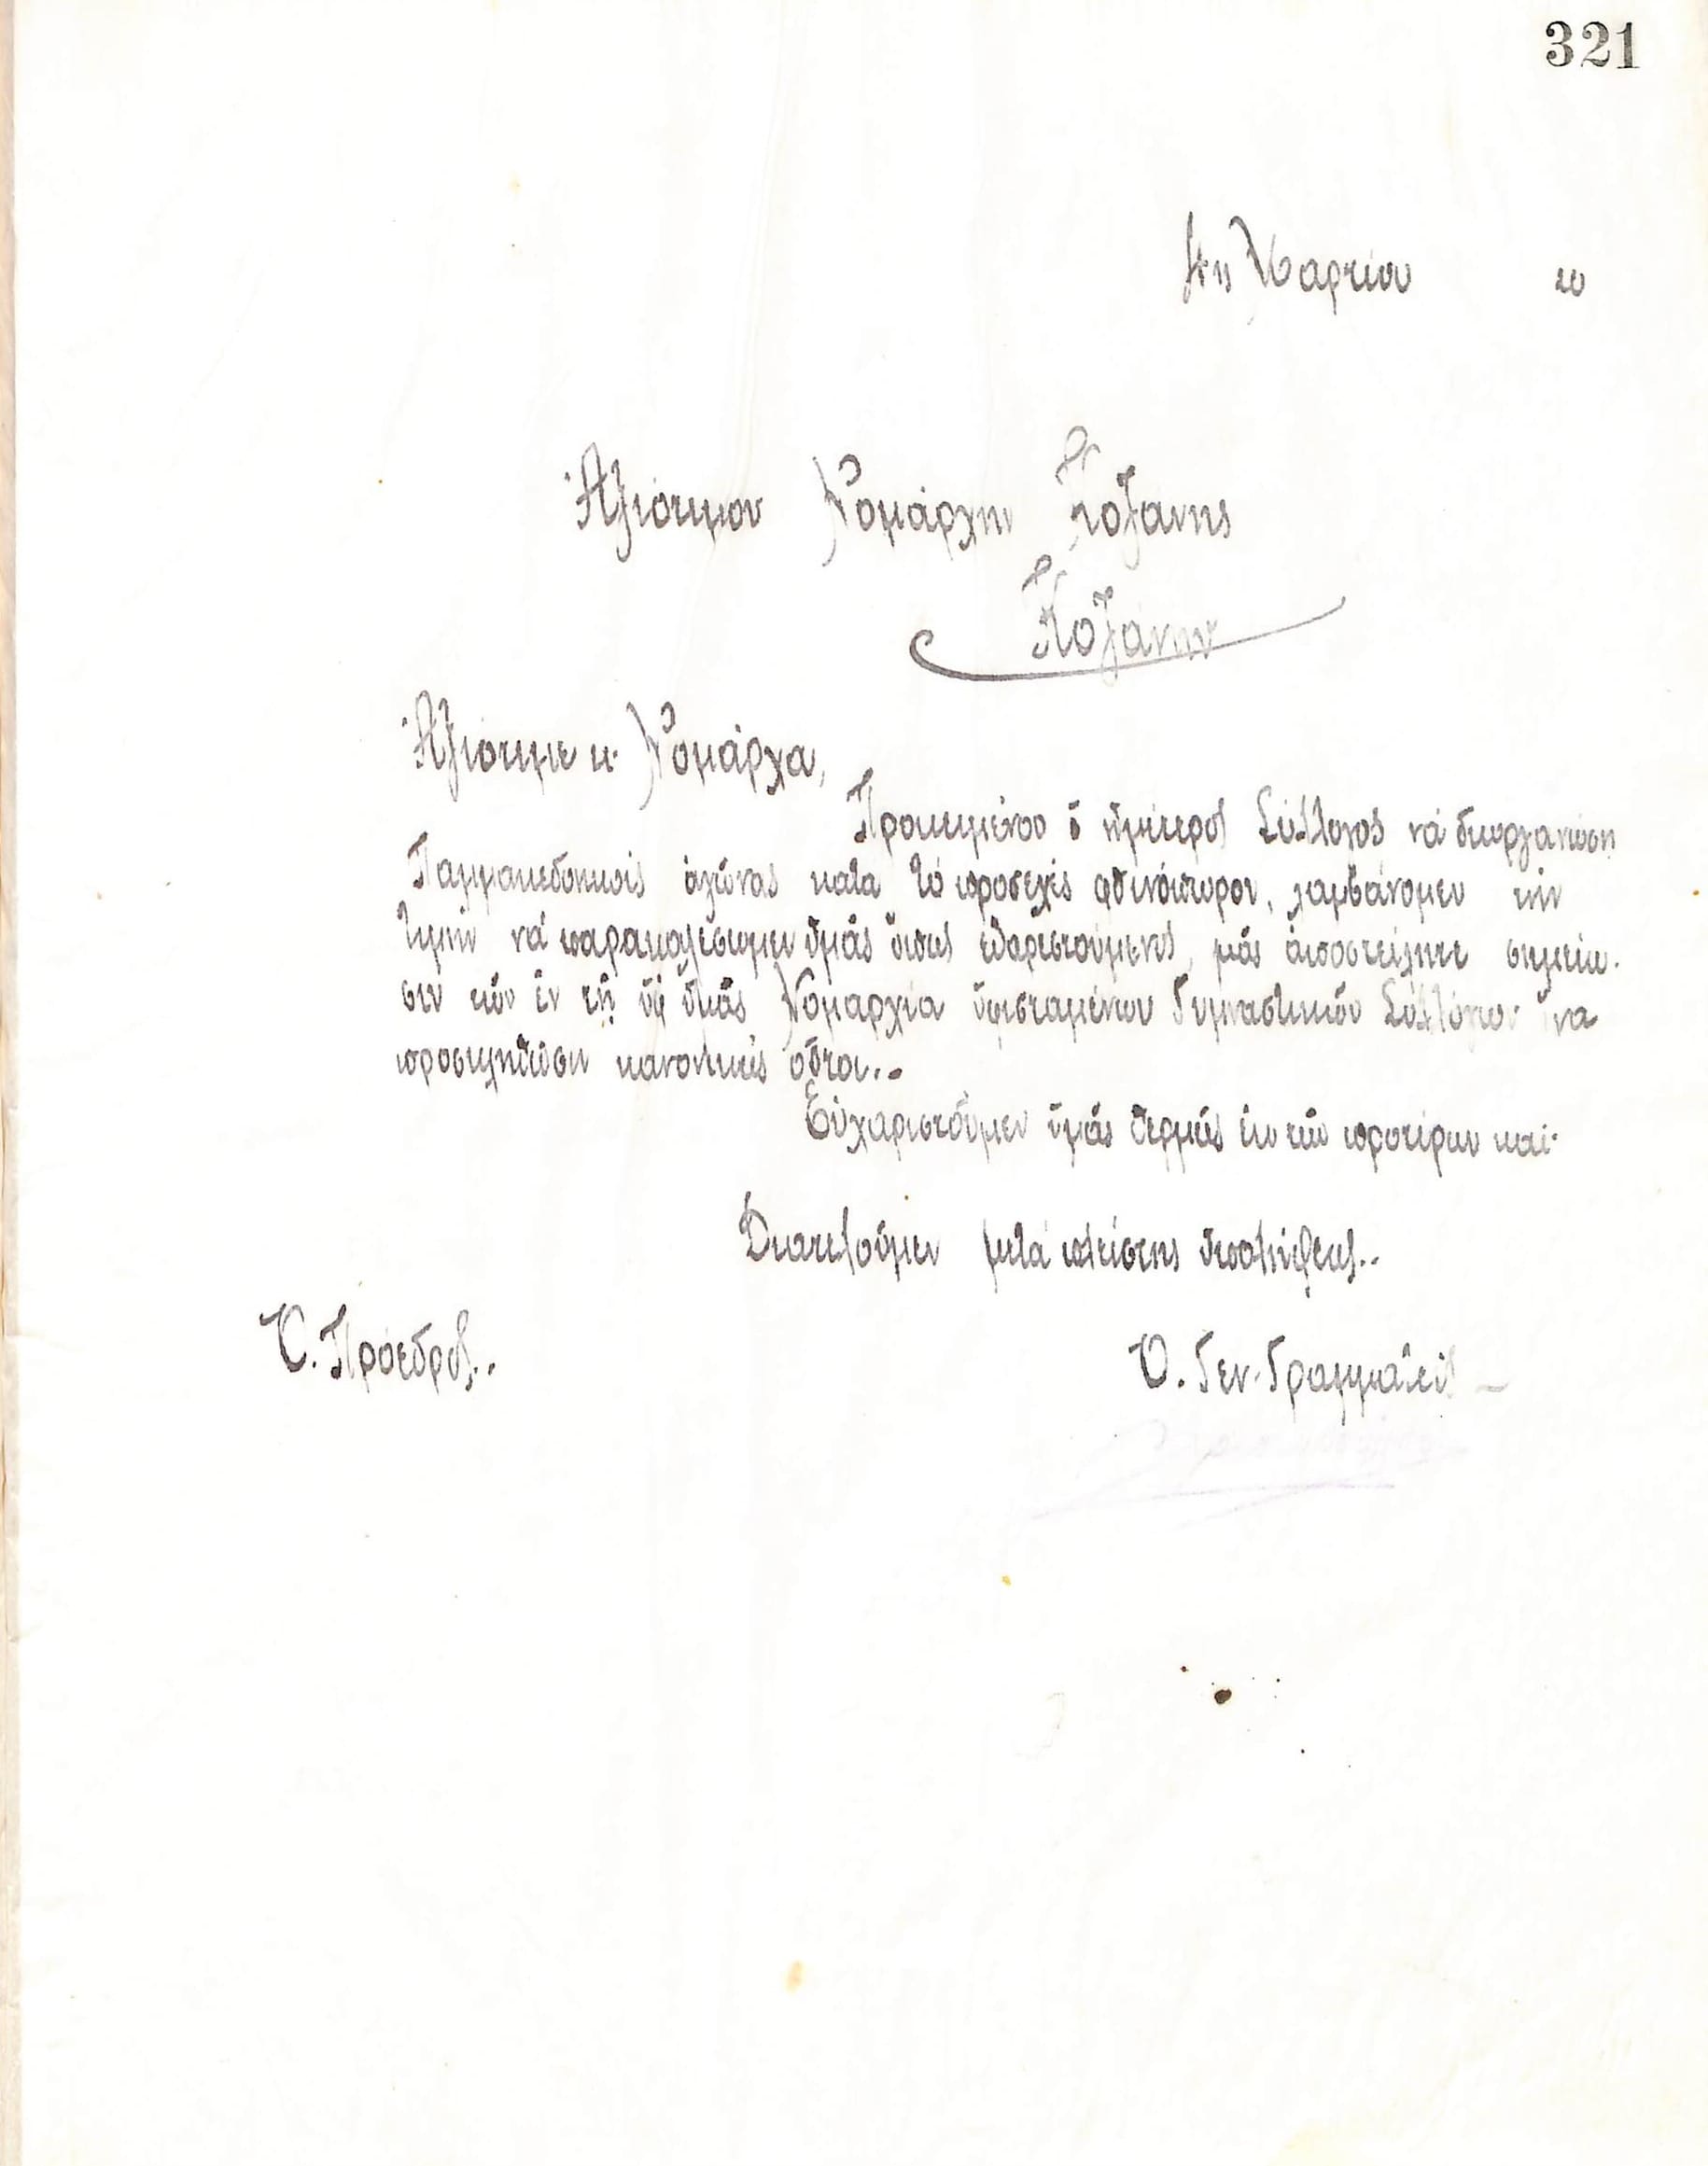 321
4ης Μαρτίου 20
Ἀξιότιμον Νομάρχην Κοζάνης
Κοζάνην
Ἀξιότιμε κ. Νομάρχα,
Προκειμένου ὁ ἡμέτερος Σύλλογος νά διοργανώση
Παμμακεδονικούς ἀγώνας κατα τό προσεχές φθινόπωρον, λαμβάνομεν τήν
τιμήν νά παρακαλέσωμεν ὑμᾶς ὅπως εὐαρεστούμενος, μᾶς ἀποστείλητε σημείω-
σιν τῶν ἐν τῇ ὑφ ὑμᾶς Νομαρχία ὑφισταμένων Γυμναστικῶν Συλλόγων ἵνα
προσκληθῶσιν κανονικῶς οὗτοι..
Εὐχαριστοῦμεν ὑμᾶς θερμῶς ἐκ τῶν προτέρων καί
Διατελοῦμεν μετά πλείστης ὑπολήψεως..
Ὁ. Πρόεδρος..
Ὁ. Γεν. Γραμματεύς